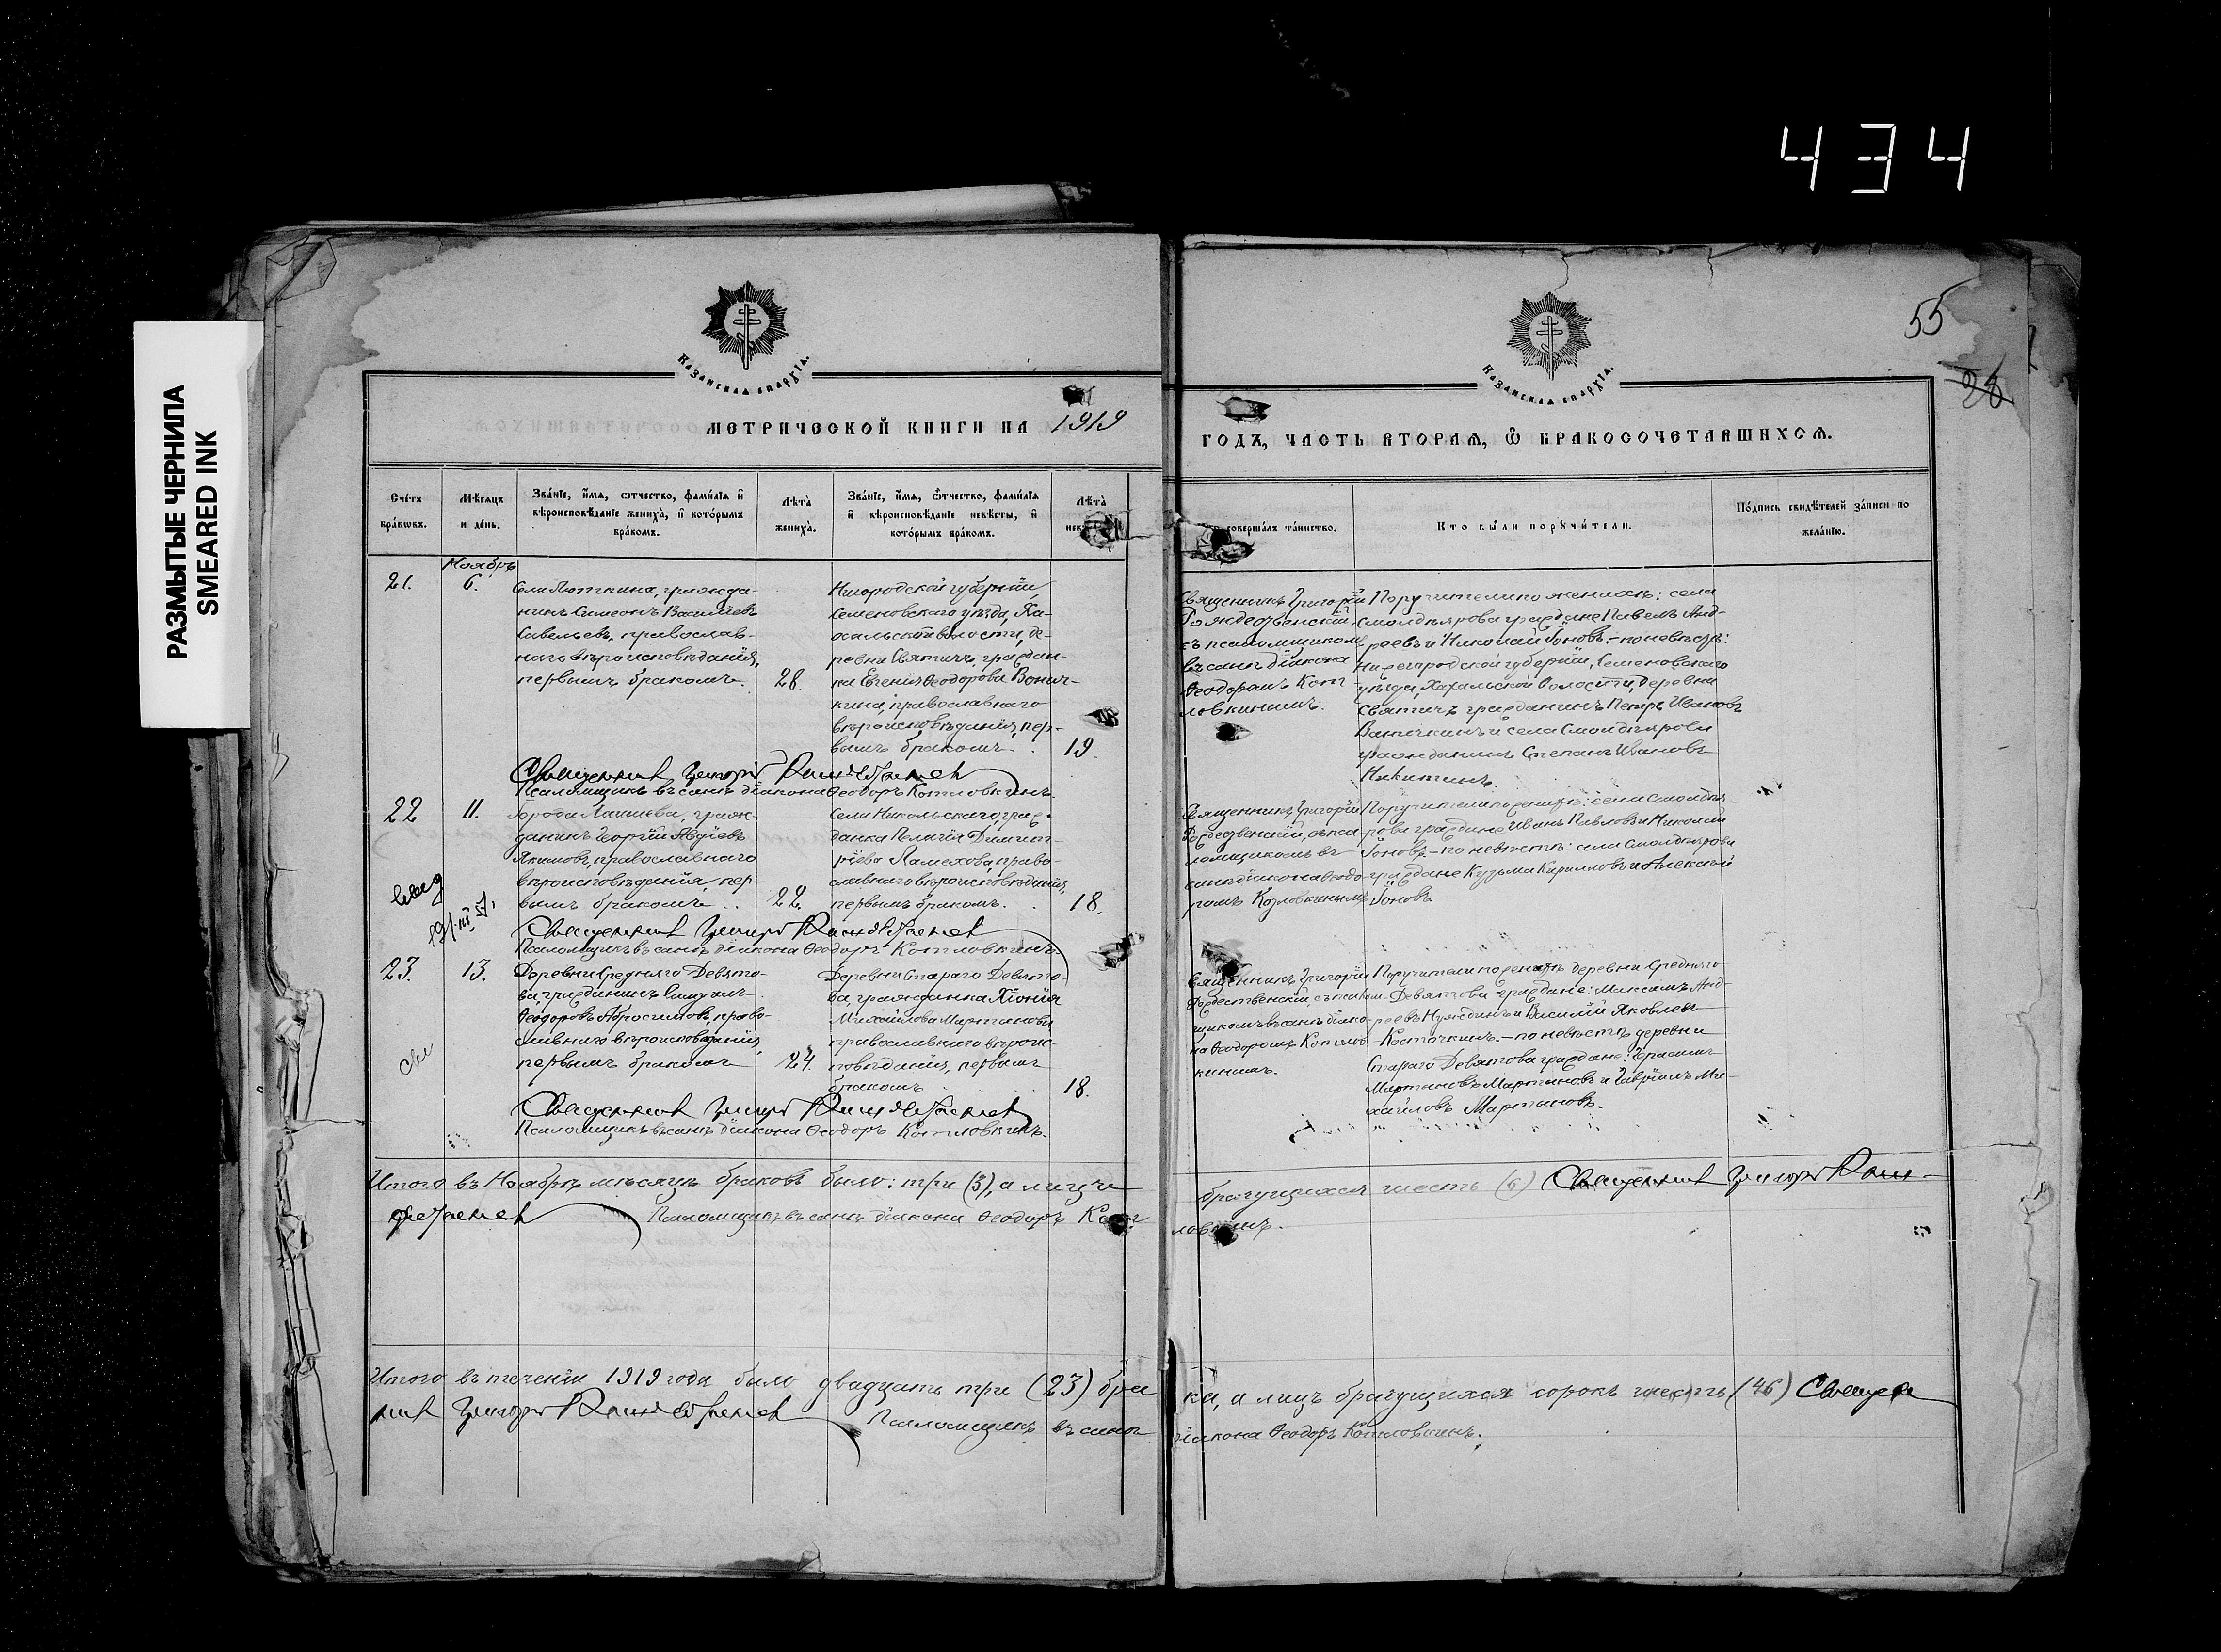 434
РАЗМЫТЫЕ ЧЕРНИЛА
SMEARED INK
55
28
Казанская епархія.
Казанская епархія.
МЕТРИЧЕСКОЙ КНИГИ НА 1919
ГОДЪ, ЧАСТЬ ВТОРАЯ, Ѿ БРАКОСОЧЕТАВШИХСЯ.
Счетъ браковъ.
Мѣсяцъ и день.
Званіе, имя, отчество, фамилія и вѣроисповѣданіе жениха, и которымъ бракомъ.
Лѣта жениха.
Званіе, имя, отчество, фамилія и вѣроисповѣданіе невѣсты, и которымъ бракомъ.
Лѣта
совершалъ таинство.
Кто были поручители.
Подпись свидѣтелей записи по желанію.
Ноябрь
21.
6.
гражда-
нинъ Симеонъ Васильевъ
Савельевъ, православ-
наго вѣроисповѣданія,
первымъ бракомъ.
28.
губерніи,
Семеновскаго уѣзда, Ха-
хальской волости, де-
ревни Святичъ, граждан-
ка Евгенія Ѳеодорова
православнаго
вѣроисповѣданія, пер-
вымъ бракомъ.
19.
Священникъ Григорій
Рождественскій
съ псаломщикомъ
въ санѣ діакона
Ѳеодоромъ Кот-
ловкинымъ.
Поручители по женихѣ: села
Смолдеярова граждане Павелъ Анд-
реевъ и Николай Іоновъ. - по невѣстѣ:
Нижегородской губерніи, Семеновскаго
уѣзда, Хахальской волости, деревни
Святичъ гражданинъ Петръ Ивановъ
и села Смолдеярова
гражданинъ Степанъ Ивановъ
Никитинъ.
Священникъ Григорій Рождественскій
Псаломщикъ въ санѣ діакона Ѳеодоръ Котловкинъ.
22
11.
Города Лаишева, граж-
данинъ Георгій Авдіевъ
Якимовъ, православнаго
вѣроисповѣданія, пер-
вымъ бракомъ
22.
Села Никольскаго, граж-
данка Пелагія Димит-
ріева право-
славнаго вѣроисповѣданія,
первымъ бракомъ.
18.
Священникъ Григорій
Рождественскій, съ пса-
ломщикомъ въ
санѣ діакона Ѳеодо-
ромъ Котловкинымъ
Поручители по женихѣ: села Смолдея-
рова граждане Иванъ Павловъ и Николай
Іоновъ. - по невѣстѣ: села Смолдеярова
граждане Кузьма Кириловъ и Алексѣй
Іоновъ.
Священникъ Григорій Рождественскій
Псаломщикъ въ санѣ діакона Ѳеодоръ Котловкинъ.
23.
13.
Деревни Средняго Девято-
ва, гражданинъ
Ѳеодоровъ Абросимовъ, право-
славнаго вѣроисповѣданія,
первымъ бракомъ
24.
Деревни Стараго Девято-
ва, гражданка Хіонія
Михайлова Мартынова
православнаго вѣроис-
повѣданія, первымъ
бракомъ
18.
Священникъ Григорій
Рождественскій, съ псалом-
щикомъ въ санѣ діако-
на Ѳеодоромъ Котлов-
кинымъ.
Поручители по женихѣ деревни Средняго
Девятова граждане: Максимъ Анд-
реевъ и Василій Яковлевъ
Косточкинъ. - по невѣстѣ деревни
Стараго Девятова граждане: Герасимъ
Мартыновъ Мартыновъ и Гавріилъ Ми-
хайловъ Мартыновъ.
Священникъ Григорій Рождественскій
Псаломщикъ въ санѣ діакона Ѳеодоръ Котловкинъ.
Итого въ Ноябрѣ мѣсяцѣ браковъ было: три (3), а лицъ
брачущихся шесть (6) Священникъ Григорій Рож-
дественскій Псаломщикъ въ санѣ діакона Ѳеодоръ Кот-
ловкинъ.
Итого въ теченіи 1919 года было двадцать три (23) бра
ка, а лицъ брачущихся сорокъ шесть (46) Священ
никъ Григорій Рождественскій Псаломщикъ въ санѣ
діакона Ѳеодоръ Котловкинъ.